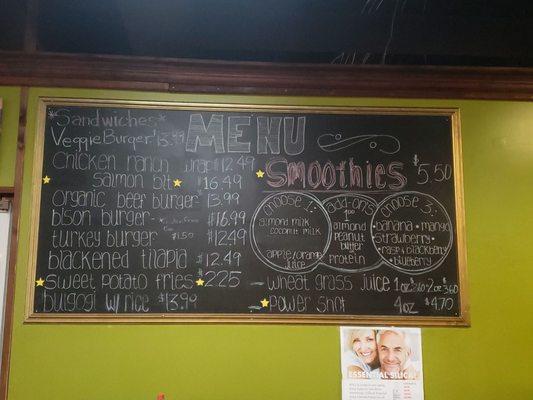 *Sandwiches*
Veggie Burger 13.99
Chicken ranch wrap $12.49
Salmon blt $16.49
Organic beef burger 13.99
bison burger $16.99
turkey burger $1.50 $12.49
blackened tilapia $12.49
Sweet potato fries $2.25
bulgogi w/ rice $13.99
MENU
Smoothies $5.50
choose 1:
almond milk
coconut milk
apple/orange
juice
add-ons
1.00
almond
peanut
butter
protein
choose 3:
banana • mango
strawberry
• rasp & blackberry
blueberry
wheat grass juice 1oz 2oz 3.60
power shot 4oz $4.70
ESSENTIAL SILICA